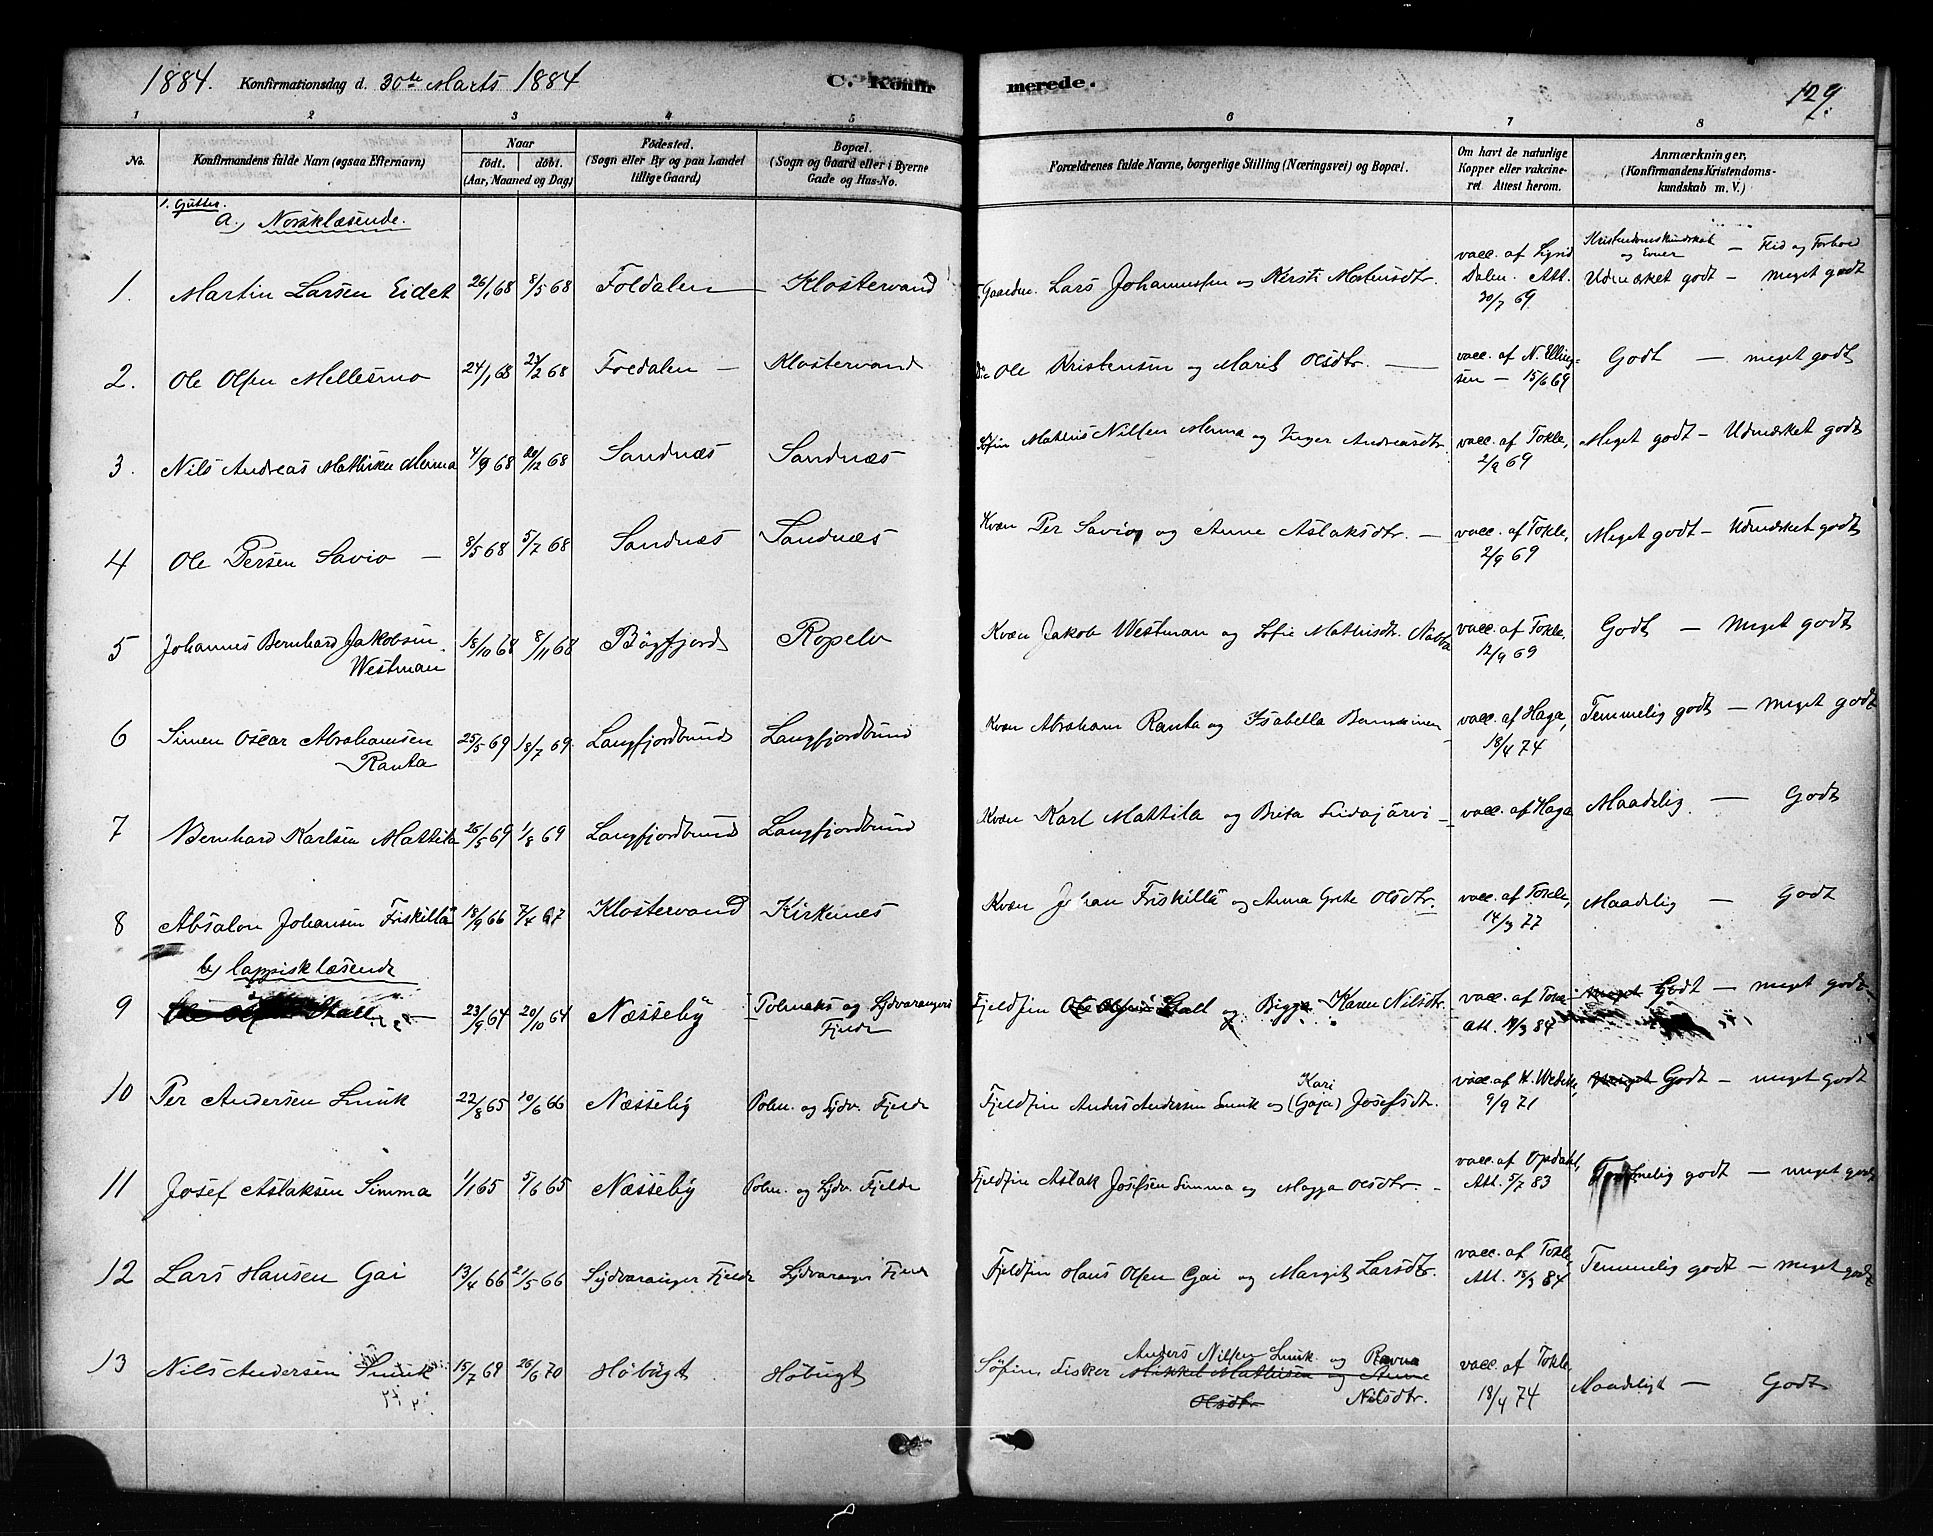 1884. Konfirmationsdag d. 30te Marts 1884 C. Konfirmerede. 129.
1 2 3 4 5 6 7 8
No. Konfirmandens fulde Navn (ogsaa Efternavn) Naar født. døbt. (Aar, Maaned og Dag) Fødested. (Sogn eller By og paa Landet tillige Gaard) Bopæl. (Sogn og Gaard eller i Byerne Gade og Hus-No. Forældrenes fulde Navne, borgerlige Stilling (Næringsvei) og Bopæl. Om havt de naturlige Kopper eller vakcineret. Attest herom. Anmærkninger. (Konfirmandens Kristendomskundskab m. V.)
1. Gutter.
a., Norsklæsende.
Kristendomskundskab og Evner — Flid og Forhold
1. Martin Larsen Eidet 26/1 68 8/5 68 Foldalen — Klostervand Gaardm. Lars Johannessen og Kersti Mortensdtr. vacc. af Lynd Dalen. Att. 30/7 69. Udmærket godt — meget godt
2. Ole Olsen Mellesmo 24/1 68 23/2 68 Foldalen — Klostervand Do Ole Kristensen og Marit Olsdtr. — vacc. af N. Ellingsen — 15/6 69 Godt — meget godt
3. Nils Andreas Mathisen Menna 4/9 68 29/12 68 Sandnæs Sandnæs Søfin Mathis Nilsen Menna og Inger Andreasdtr. vacc. af Tokle, 2/9 69 Meget godt — Udmærket godt
4 Ole Persen Savio — 8/5 68 5/7 68 Sandnæs Sandnæs Kvæn Per Savio og Anne Aslaksdtr. — vacc. af Tokle, 2/9 69 Meget godt — Udmærket godt
5 Johannes Bernhard Jakobsen Westman 18/10 68 8/11 68 Bøgfjord Ropelv Kvæn Jakob Westman og Sofie Mathisdtr. Nabba vacc. af Tokle, 12/9 69 Godt — Meget godt
6 Simen Oscar Abrahamsen Ranta 25/5 69 18/7 69. Langfjordbund Langfjordbund Kvæn Abraham Ranta og Isabella — vacc. af Haga, 18/4 74 Temmelig godt — meget godt
7 Bernhard Karlsen Mattila 26/5 69 1/8 69 Langfjordbund Langfjordbund Kvæn Karl Mattila og Brita — vacc. af Haga Maadelig. — Godt
8 Absalon Johansen Friskillä 18/9 66 7/4 67 Klostervand Kirkenes Kvæn Johan Friskillä og Anna Grete Olsdtr. vacc. af Tokle, 14/3 77 Maadelig — Godt
b) lappisklæsende
9 Ole Stall — 23/9 64 20/10 64 Næsseby Polmaks og Sydvarangers Fjelde Fjeldfin Ole Olsen Stall og Bigga Karen Nilsdtr. vacc. af Att. 84 meget Godt — meget godt
10 Per Andersen Smuk 22/8 65 10/6 66 Næsseby Polm. og Sydv. Fjelde Fjeldfin Anders Andersen Smuk og Kari (Gaja) Josefsdtr. vacc. af H. 9/9 71 meget Godt — meget godt
11 Josef Aslaksen Simma 1/1 65 5/6 65 Næsseby Polm. og Sydv. Fjelde Fjeldfin Aslak Josefsen Simma og Magga Olsdtr — vacc. af Opdahl, Att. 5/7 83 Temmelig godt — meget godt
12 Lars Hansen Gai 13/4 66 21/5 66 Sydvaranger Fjelde Sydvaranger Fjelde Fjeldfin Hans Olsen Gai og Margit Larsdtr. vacc. af Tokle, Att. 18/3 84 Temmelig godt — meget godt
13 Nils Andersen Smuk 15/7 69 26/6 70 Høbugt Høbugt Søfin Fisker Anders Nilsen Smuk og Ravna Mikkel Mathisen og Anne Olsdtr Nilsdtr. vacc. af Tokle, 18/4 74 Maadeligt — Godt